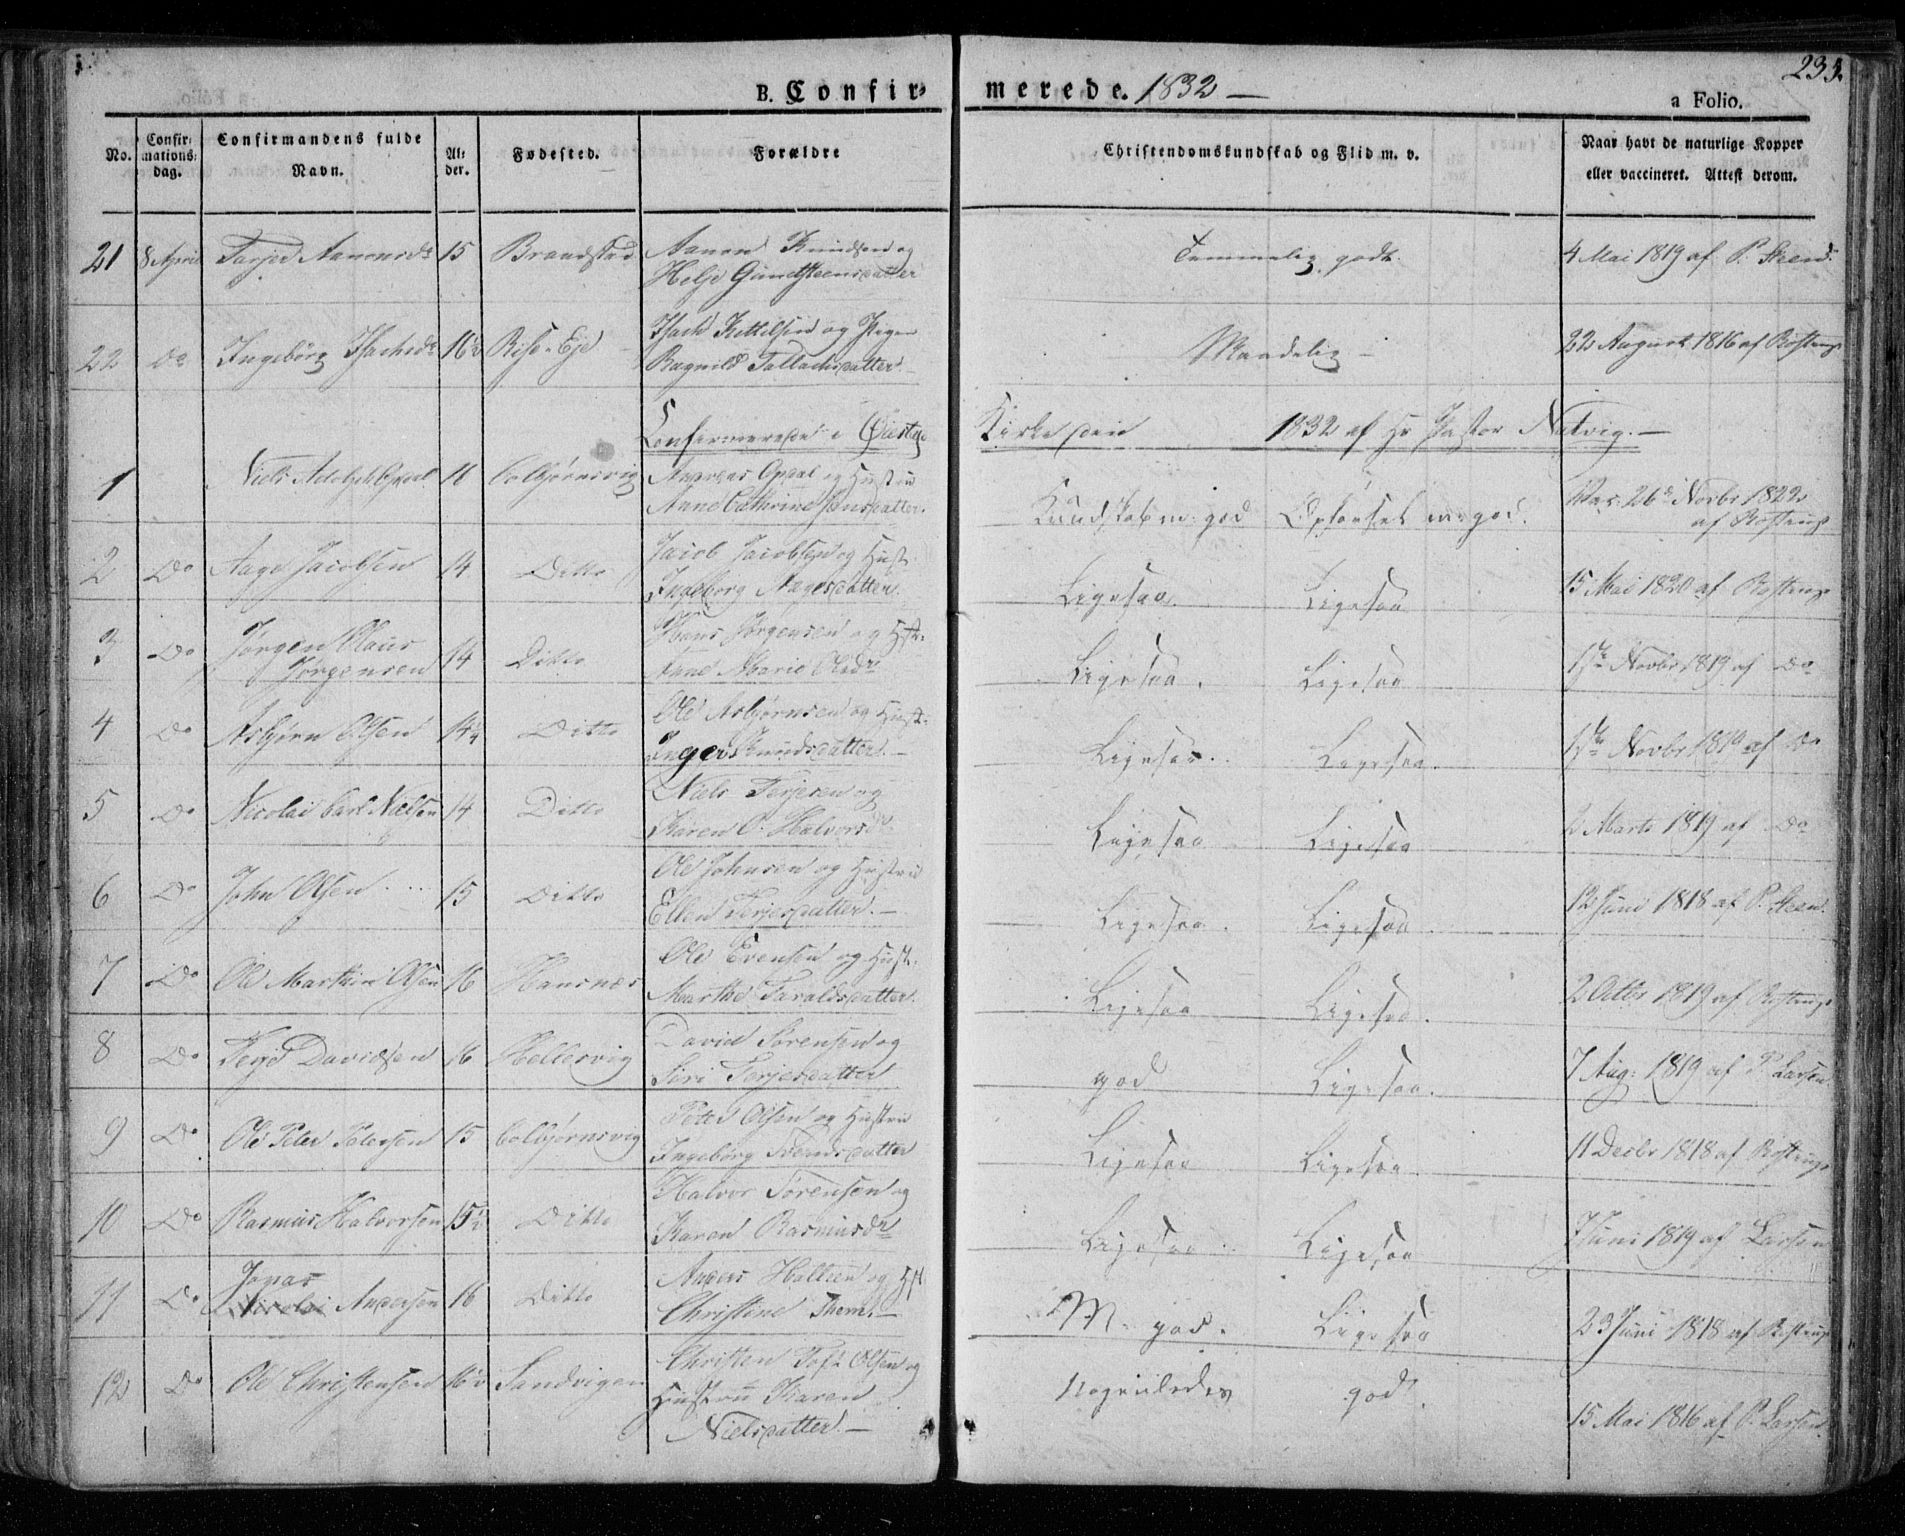 B. Confir-
merede. 1832 —
233.
a Folio.
No.
Confir-
mations-
dag.
Confirmandens fulde
Navn.
Al-
der.
Fødested.
Forældre
Christendomskundskab og Flid m. v.
Naar havt de naturlige Kopper
eller vaccineret. Attest derom.
21 8 April Tarjer Aanonsdr 15 Brandstad Aanon Knudsen og
Helje Gundsteensdatter
Temmelig godt.
4 Mai 1819 af P. Steen
22 Do Ingebòrg Isachsdr 16½ Rise-Eje Isach Kittelsen og Pigen
Ragnild Tallachsdatter —
Maadelig —
22 August 1816 af Rostrup
Confirmerede i Øiestad
Kirke den 1832 af Hr Pastor Natvig. —
1 Niels Adolph Opdal 16 Colbjørnsvig Andreas Opdal og Hustru
Anne Cathrine Jensdatter.
Kundskab m: god Opførsel m: god.
Vac: 26 Novbr 1822
af Rostrup
2 Do Aage Jacobsen 14 Ditto Jacob Jacobsen og Hust
Ingeborg Aagesdatter.
Ligesaa. Ligesaa
15 Mai 1820 af Rostrup
3 Do Jørgen Claus
Jørgensen 14 Ditto Hans Jørgensen og Hst:
Anne Marie Olsdr
Ligesaa. Ligesaa
17de Novbr 1819 af Do
4 Do Asbjørn Olsen 14¼ Ditto Ole Asbjørnsen og Hust:
Inger Knudsdatter. —
Ligesaa. Ligesaa.
17de Novbr 1819 af Do
5 Do Nicolai Carl Nielsen 14 Ditto Niels Terjesen og
Karen O. Halvorsdr
Ligesaa Ligesaa
2 Marts 1819 af Do
6 Do John Olsen 15 Ditto Ole Johnsen og Hustru
Ellen Terjesdatter. —
Ligesaa. Ligesaa.
12 Juni 1818 af P. Steen.
7 Do Ole Marthin Olsen 16 Hausnæs Ole Evensen og Hust:
Marthe Taraldsdatter.
Ligesaa Ligesaa.
2 Octbr 1819 af Rostrup
8 Do Terje Davidsen 16 Hellesvig David Sørensen og
Siri Terjesdatter
god Ligesaa.
7 Aug: 1819 af P. Larsen
9 Do Ole Peter Petersen 15 Colbjørnsvig Peter Olsen og Hustru
Ingeborg Svendsdatter
Ligesaa Ligesaa.
11 Decbr 1818 af Rostrup
10 Do Rasmus Halvorsen 15½ Ditto Halvor Sørensen og
Karen Rasmusdr
Ligesaa Ligesaa
7 Juni 1819 af Larsen
11 Do Jonas
Nicolai Andersen 16 Ditto Anders Hallsen og Hst
Christine Thom. —
M. god. Ligesaa
23 Juni 1818 af Rostrup
12 Do Ole Christensen 16½ Sandvigen Christen Tof: Olsen og
Hustru Karen
Nielsdatter. —
Nogenledes god.
15 Mai 1816 af P. Larsen